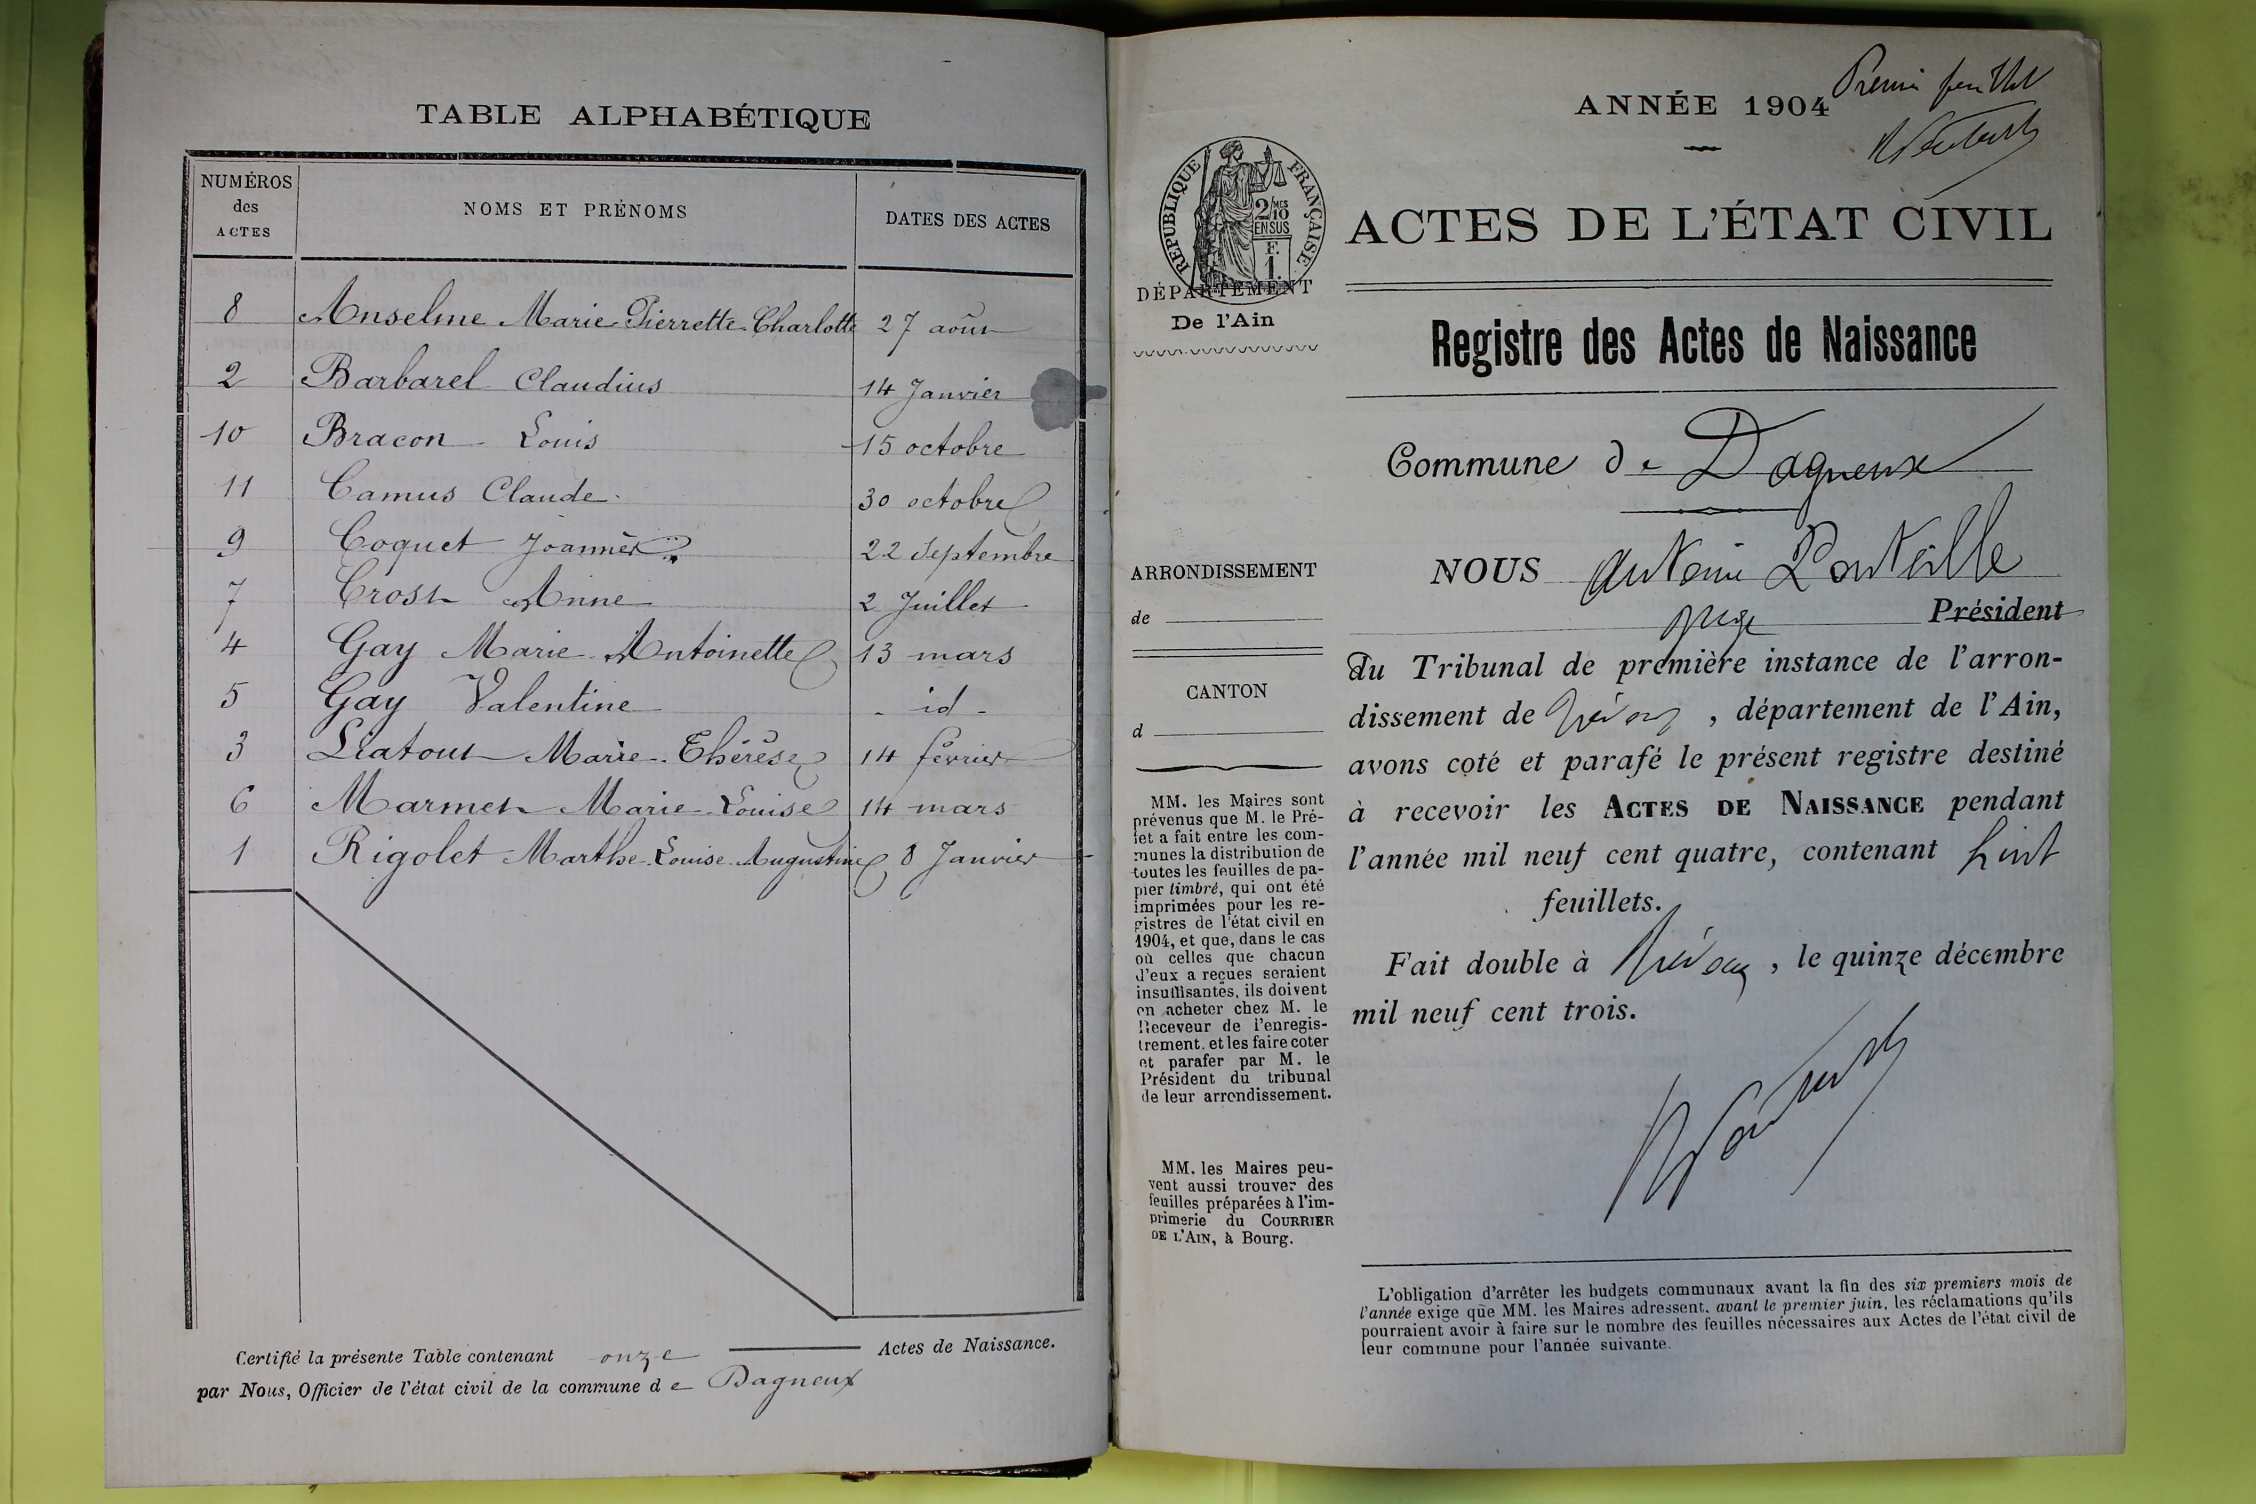 TABLE ALPHABÉTIQUE
NUMÉROS des ACTES
NOMS ET PRÉNOMS
DATES DES ACTES
8 Anselme Marie Pierrette Charlotte 27 août
2 Barbarel Claudius 14 Janvier
10 Bracon Louis 15 octobre
11 Camus Claude 30 octobre
9 Coquet Joannès 22 Septembre
7 Crost Anne 2 Juillet
4 Gay Marie Antoinette 13 mars
5 Gay Valentine - id -
3 Liatout Marie-Thérèse 14 février
6 Marmet Marie-Louise 14 mars
1 Rigolet Marthe Louise Augustine 8 Janvier
Certifié la présente Table contenant onze Actes de Naissance.
par Nous, Officier de l'état civil de la commune de Dagneux
ANNÉE 1904
Premier feuillet
RÉPUBLIQUE FRANÇAISE
2/10 MES
EN SUS
F.
1.
ACTES DE L'ÉTAT CIVIL
DÉPARTEMENT
De l'Ain
Registre des Actes de Naissance
Commune de Dagneux
NOUS Antoine
juge Président
du Tribunal de première instance de l'arron-
dissement de Trévoux, département de l'Ain,
avons coté et parafé le présent registre destiné
à recevoir les ACTES DE NAISSANCE pendant
l'année mil neuf cent quatre, contenant huit
feuillets.
Fait double à Trévoux, le quinze décembre
mil neuf cent trois.
ARRONDISSEMENT
de
CANTON
d
MM. les Maires sont
prévenus que M. le Pré-
fet a fait entre les com-
munes la distribution de
toutes les feuilles de pa-
pier timbré, qui ont été
imprimées pour les re-
gistres de l'état civil en
1904, et que, dans le cas
où celles que chacun
d'eux a reçues seraient
insuffisantes, ils doivent
en acheter chez M. le
Receveur de l'enregis-
trement. et les faire coter
et parafer par M. le
Président du tribunal
de leur arrondissement.
MM. les Maires peu-
vent aussi trouver des
feuilles préparées à l'im-
primerie du COURRIER
DE L'AIN, à Bourg.
L'obligation d'arrêter les budgets communaux avant la fin des six premiers mois de
l'année exige que MM. les Maires adressent, avant le premier juin, les réclamations qu'ils
pourraient avoir à faire sur le nombre des feuilles nécessaires aux Actes de l'état civil de
leur commune pour l'année suivante.